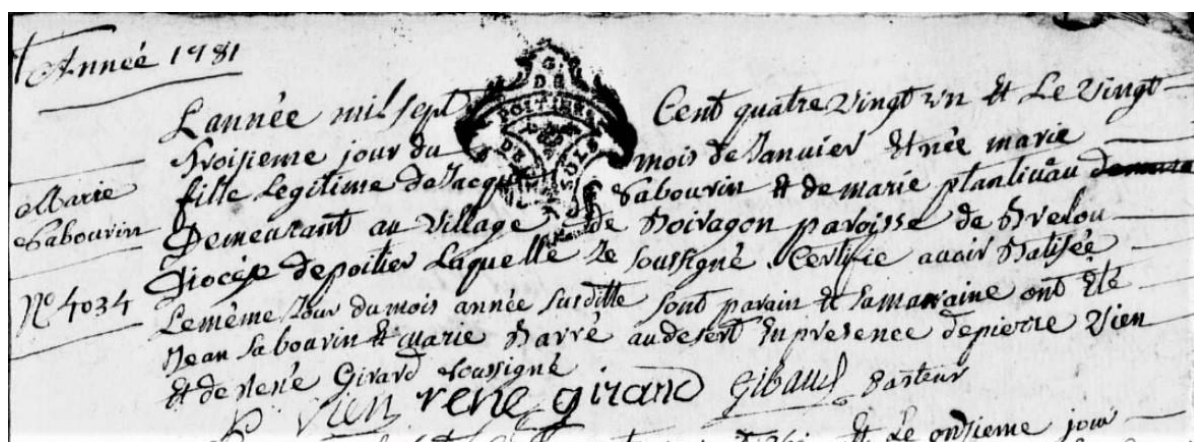 Année 1781
L'année mil sept Cent quatre Vingt un Et Le Vingt
Troisieme jour du mois de Janvier Et née marie
Marie Sabourin
fille Legitime de Jacque Sabourin Et de marie plantiveau
Demeurant au Village de Boiragon paroisse de Brelou
Diocése de poitier Laquelle Je soussigné Certifie avoir Batisée
N.º 4034
Le même Jour du mois année susditte sont parain Et sa maraine ont Eté
Jean Sabourin Et marie Barré au desert En presence de pierre Vien
Et de René Girard soussigné
P. Vien rené girard Gibaud pasteur
G. DE POITIERS
DEUX SOLS
Et Le onsieme jour